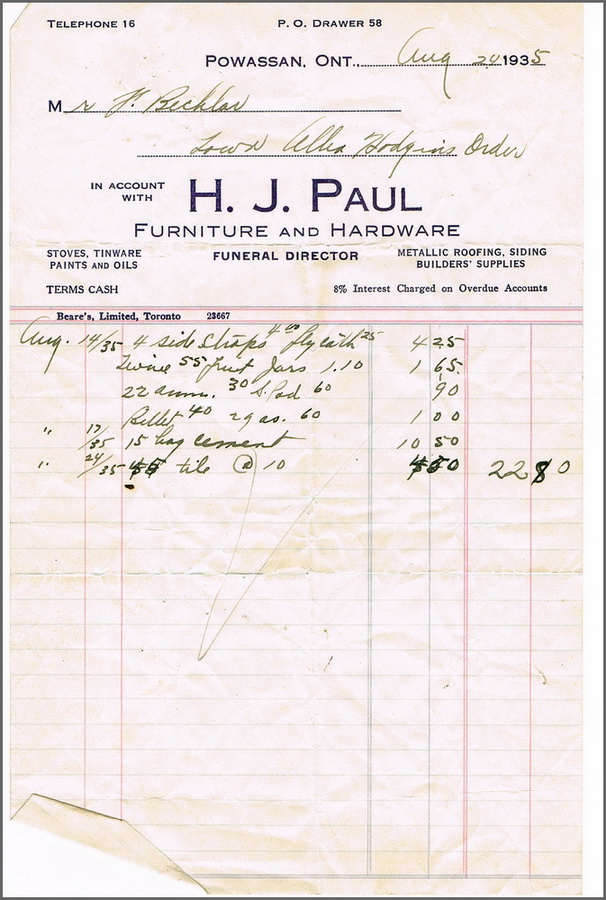 TELEPHONE 16
P. O. DRAWER 58
POWASSAN, ONT., Aug 24 1935
Mr F. Becklar
Hodgins Order
IN ACCOUNT WITH
H. J. PAUL
FURNITURE AND HARDWARE
STOVES, TINWARE
PAINTS AND OILS
FUNERAL DIRECTOR
METALLIC ROOFING, SIDING
BUILDERS' SUPPLIES
TERMS CASH
8% Interest Charged on Overdue Accounts
Beare's, Limited, Toronto 23667
Aug. 14/35 4 side straps 4 00 25 4 25
Twine 55 Fruit Jars 1.10 1 65
22 amm. 30 60 90
40 2 gas. 60 1 00
" 17/35 15 bag cement 10 50
" 24/35 tile @ 10 22 80